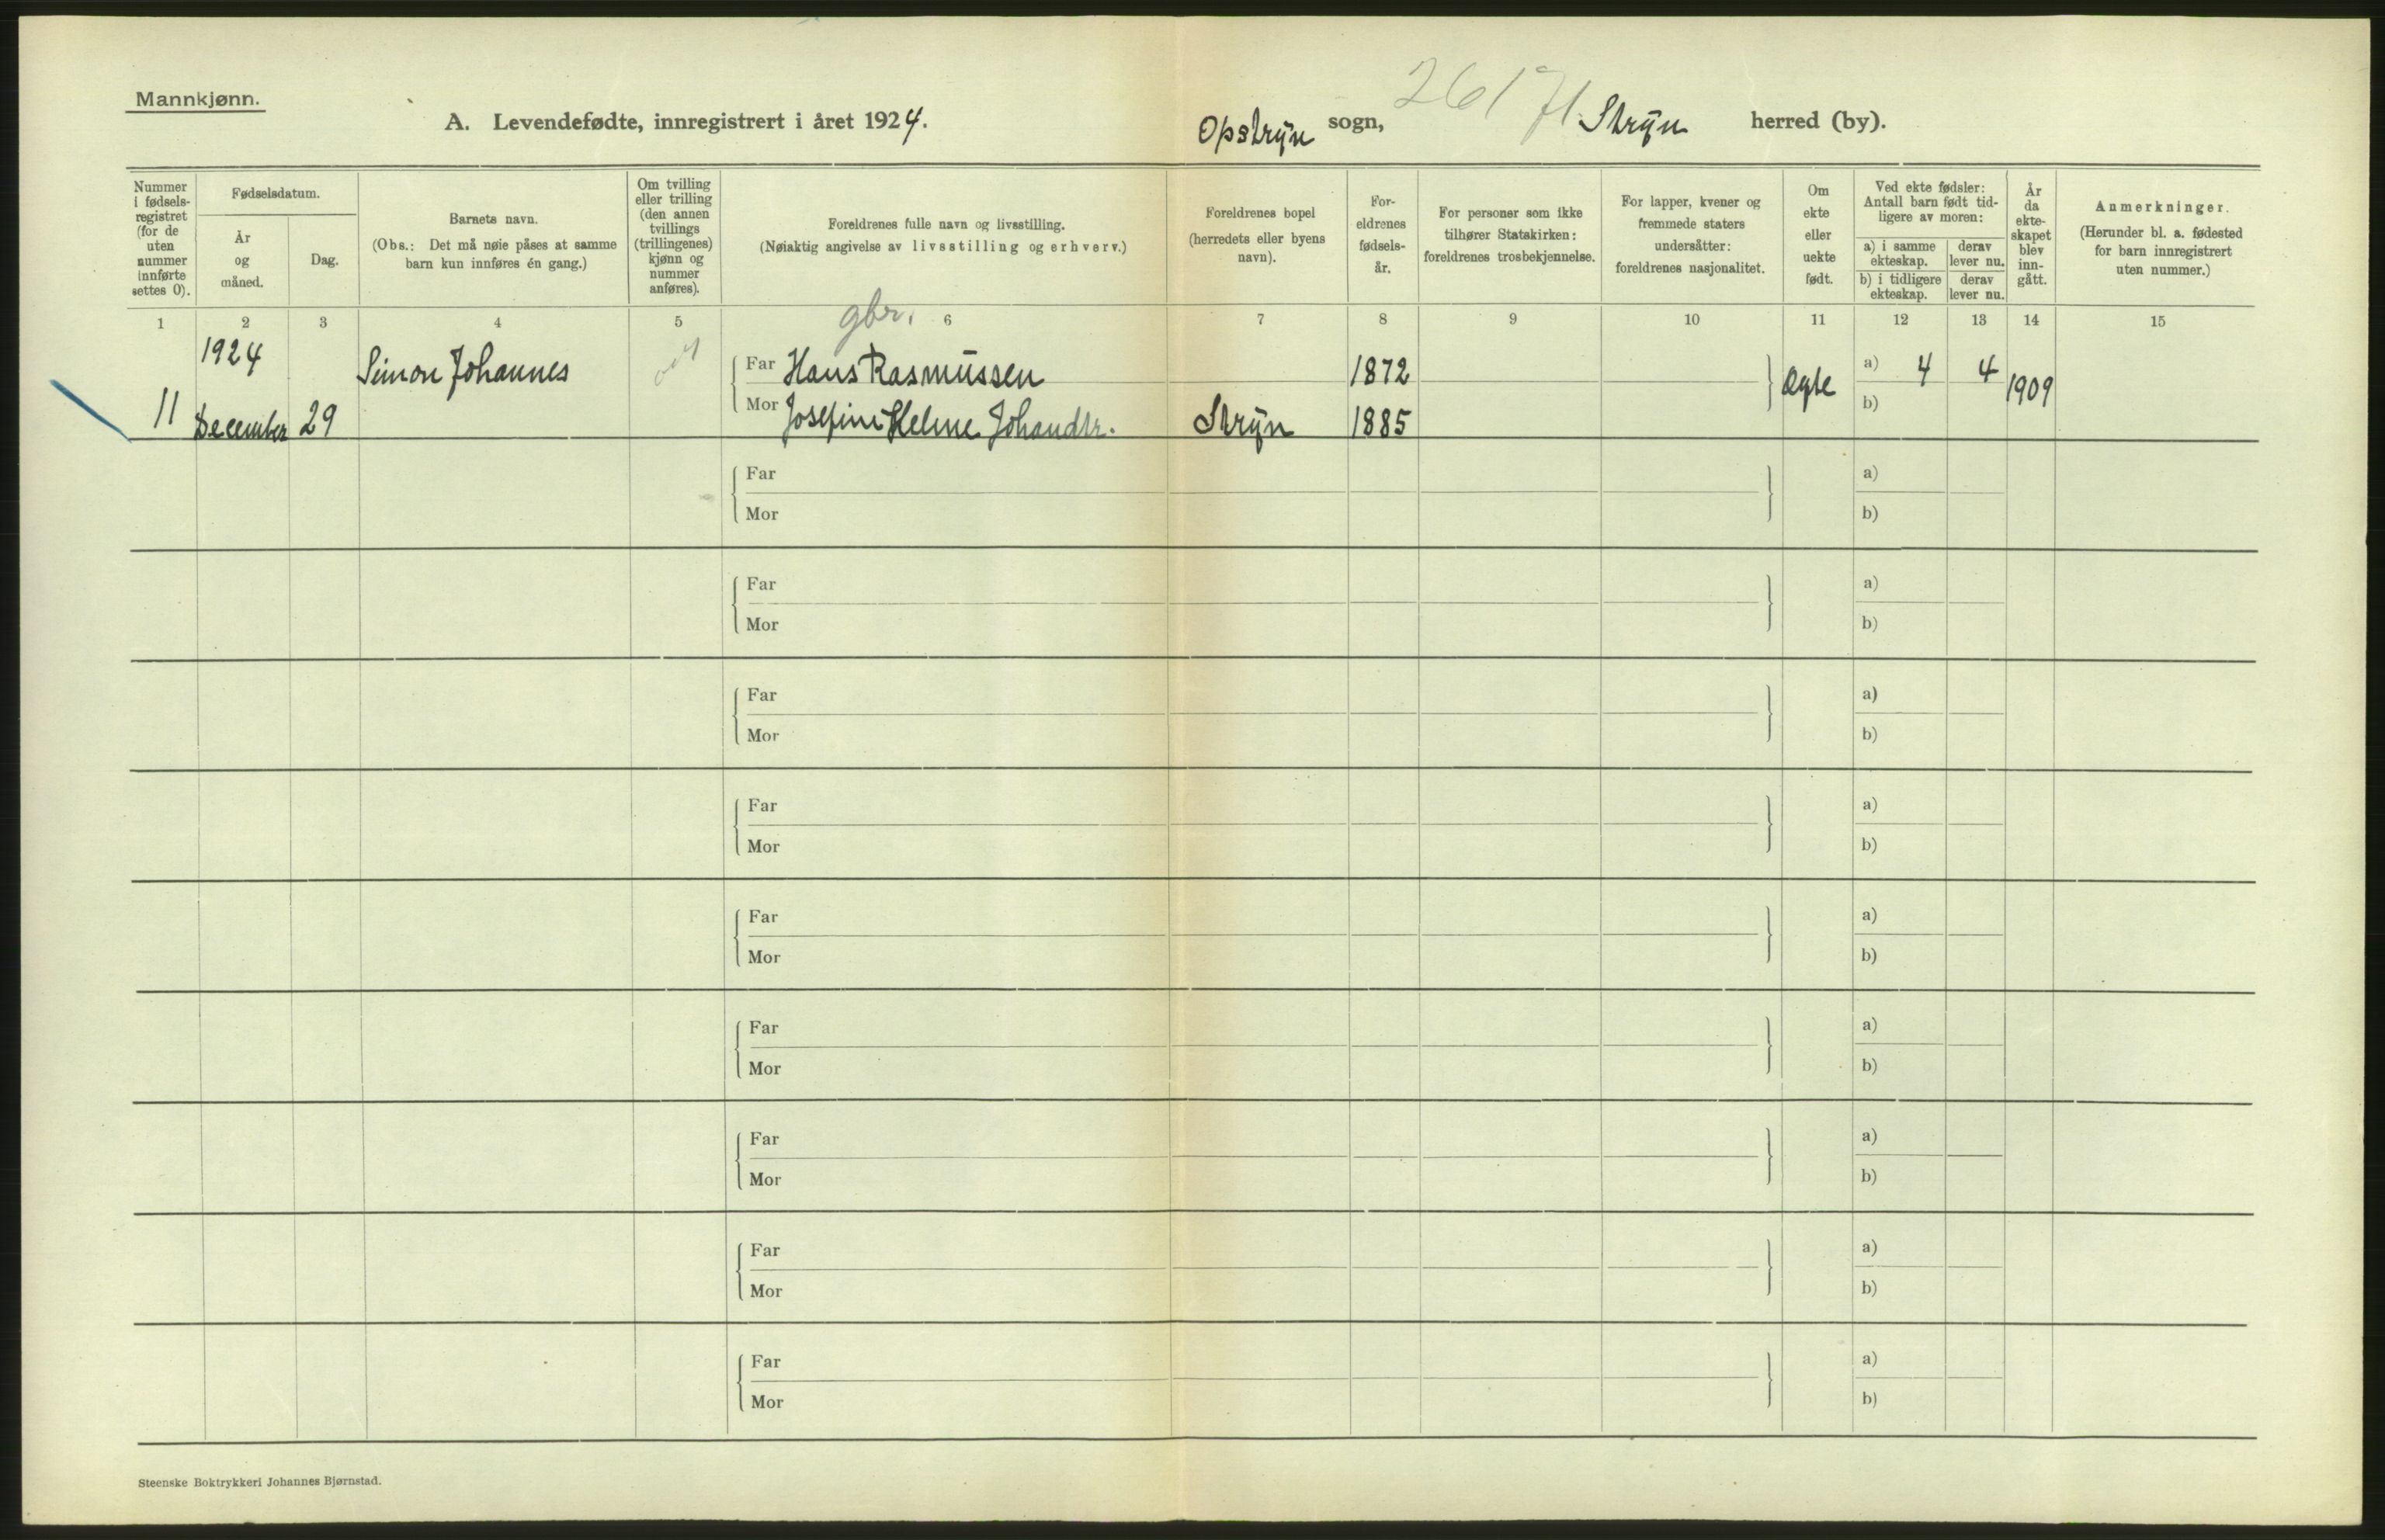 Mannkjønn.
A. Levendefødte, innregistrert i året 1924. Opstryn sogn, Stryn herred (by).
Nummer i fødsels-registret (for de uten nummer innførte settes 0).
Fødselsdatum.
År og måned.
Dag.
Barnets navn.
(Obs.: Det må nøie påses at samme barn kun innføres én gang.)
Om tvilling eller trilling (den annen tvillings (trillingenes) kjønn og nummer anføres).
Foreldrenes fulle navn og livsstilling.
(Nøiaktig angivelse av livsstilling og erhverv.)
Foreldrenes bopel (herredets eller byens navn).
For-eldrenes fødsels-år.
For personer som ikke tilhører Statskirken: foreldrenes trosbekjennelse.
For lapper, kvener og fremmede staters undersåtter: foreldrenes nasjonalitet.
Om ekte eller uekte født.
Ved ekte fødsler: Antall barn født tid-ligere av moren:
a) i samme ekteskap.
derav lever nu.
b) i tidligere ekteskap.
derav lever nu.
År da ekte-skapet blev inn-gått.
Anmerkninger.
(Herunder bl. a. fødested for barn innregistrert uten nummer.)
1 2 3 4 5 6 7 8 9 10 11 12 13 14 15
gbr.
1924 Simon Johannes Far Hans Rasmussen 1872 Ægte a) 4 4 1909
11 December 29 Mor Josefine Helme Johandtr. Stryn 1885 b)
Far a)
Mor b)
Far a)
Mor b)
Far a)
Mor b)
Far a)
Mor b)
Far a)
Mor b)
Far a)
Mor b)
Far a)
Mor b)
Far a)
Mor b)
Far a)
Mor b)
Steenske Boktrykkeri Johannes Bjørnstad.